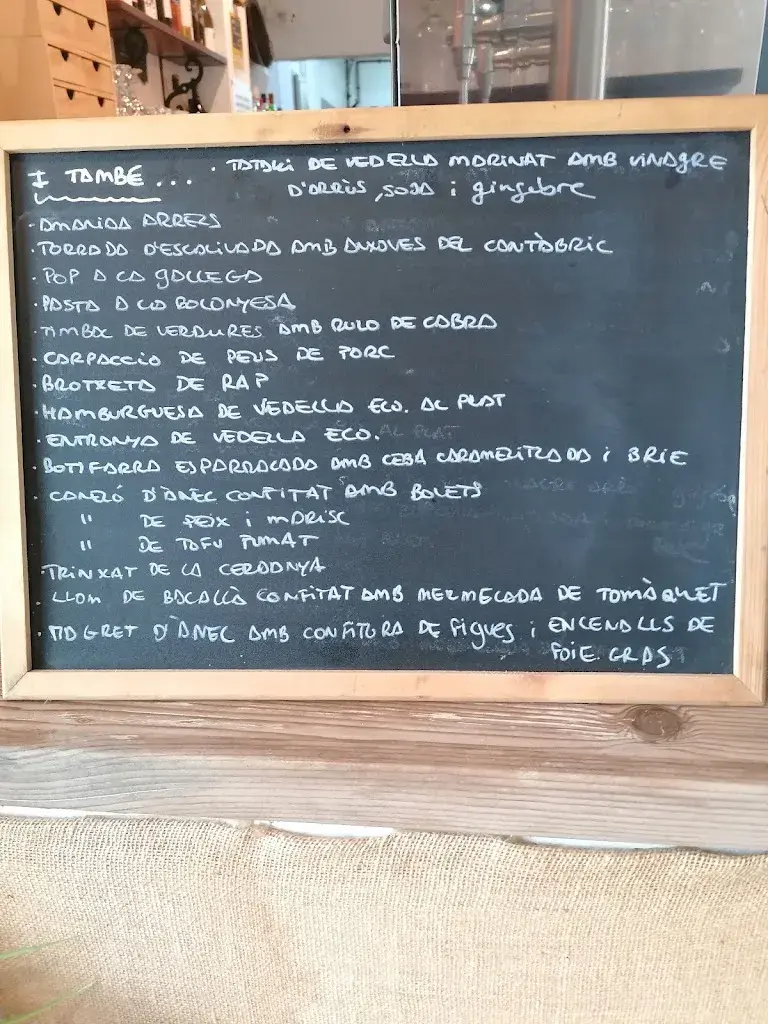 I TAMBE ... · TATAKI DE VEDELLA MARINAT AMB VINAGRE
D'ARRÒS, SOJA i gingebre
· AMANIDA ARRELS
· TORRADA D'ESCALIVADA AMB ANXOVES DEL CANTÀBRIC
· POP A LA GALLEGA
· PASTA A LA BOLONYESA
· TIMBAL DE VERDURES AMB RULO DE CABRA
· CARPACCIO DE PEUS DE PORC
· BROTXETA DE RAP
· HAMBURGUESA DE VEDELLA ECO. AL PLAT
· ENTRANYA DE VEDELLA ECO.
· BOTIFARRA ESPARRACADA AMB CEBA CARAMELITZADA i BRIE
· CANELÓ D'ÀNEC CONFITAT AMB BOLETS
" DE PEIX i MARISC
" DE TOFU FUMAT
· TRINXAT DE LA CERDANYA
· LLOM DE BACALLÀ CONFITAT AMB MERMELADA DE TOMÀQUET
· MAGRET D'ÀNEC AMB CONFITURA DE Figues i ENCENALLS DE
FOIE GRAS